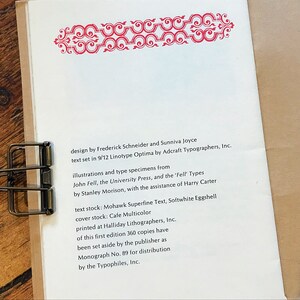 design by Frederick Schneider and Sunniva Joyce
text set in 9/12 Linotype Optima by Adcraft Typographers, Inc.
illustrations and type specimens from
John Fell, the University Press, and the 'Fell' Types
by Stanley Morison, with the assistance of Harry Carter
text stock: Mohawk Superfine Text, Softwhite Eggshell
cover stock: Cale Multicolor
printed at Halliday Lithographers, Inc.
of this first edition 360 copies have
been set aside by the publisher as
Monograph No. 89 for distribution
by the Typophiles, Inc.